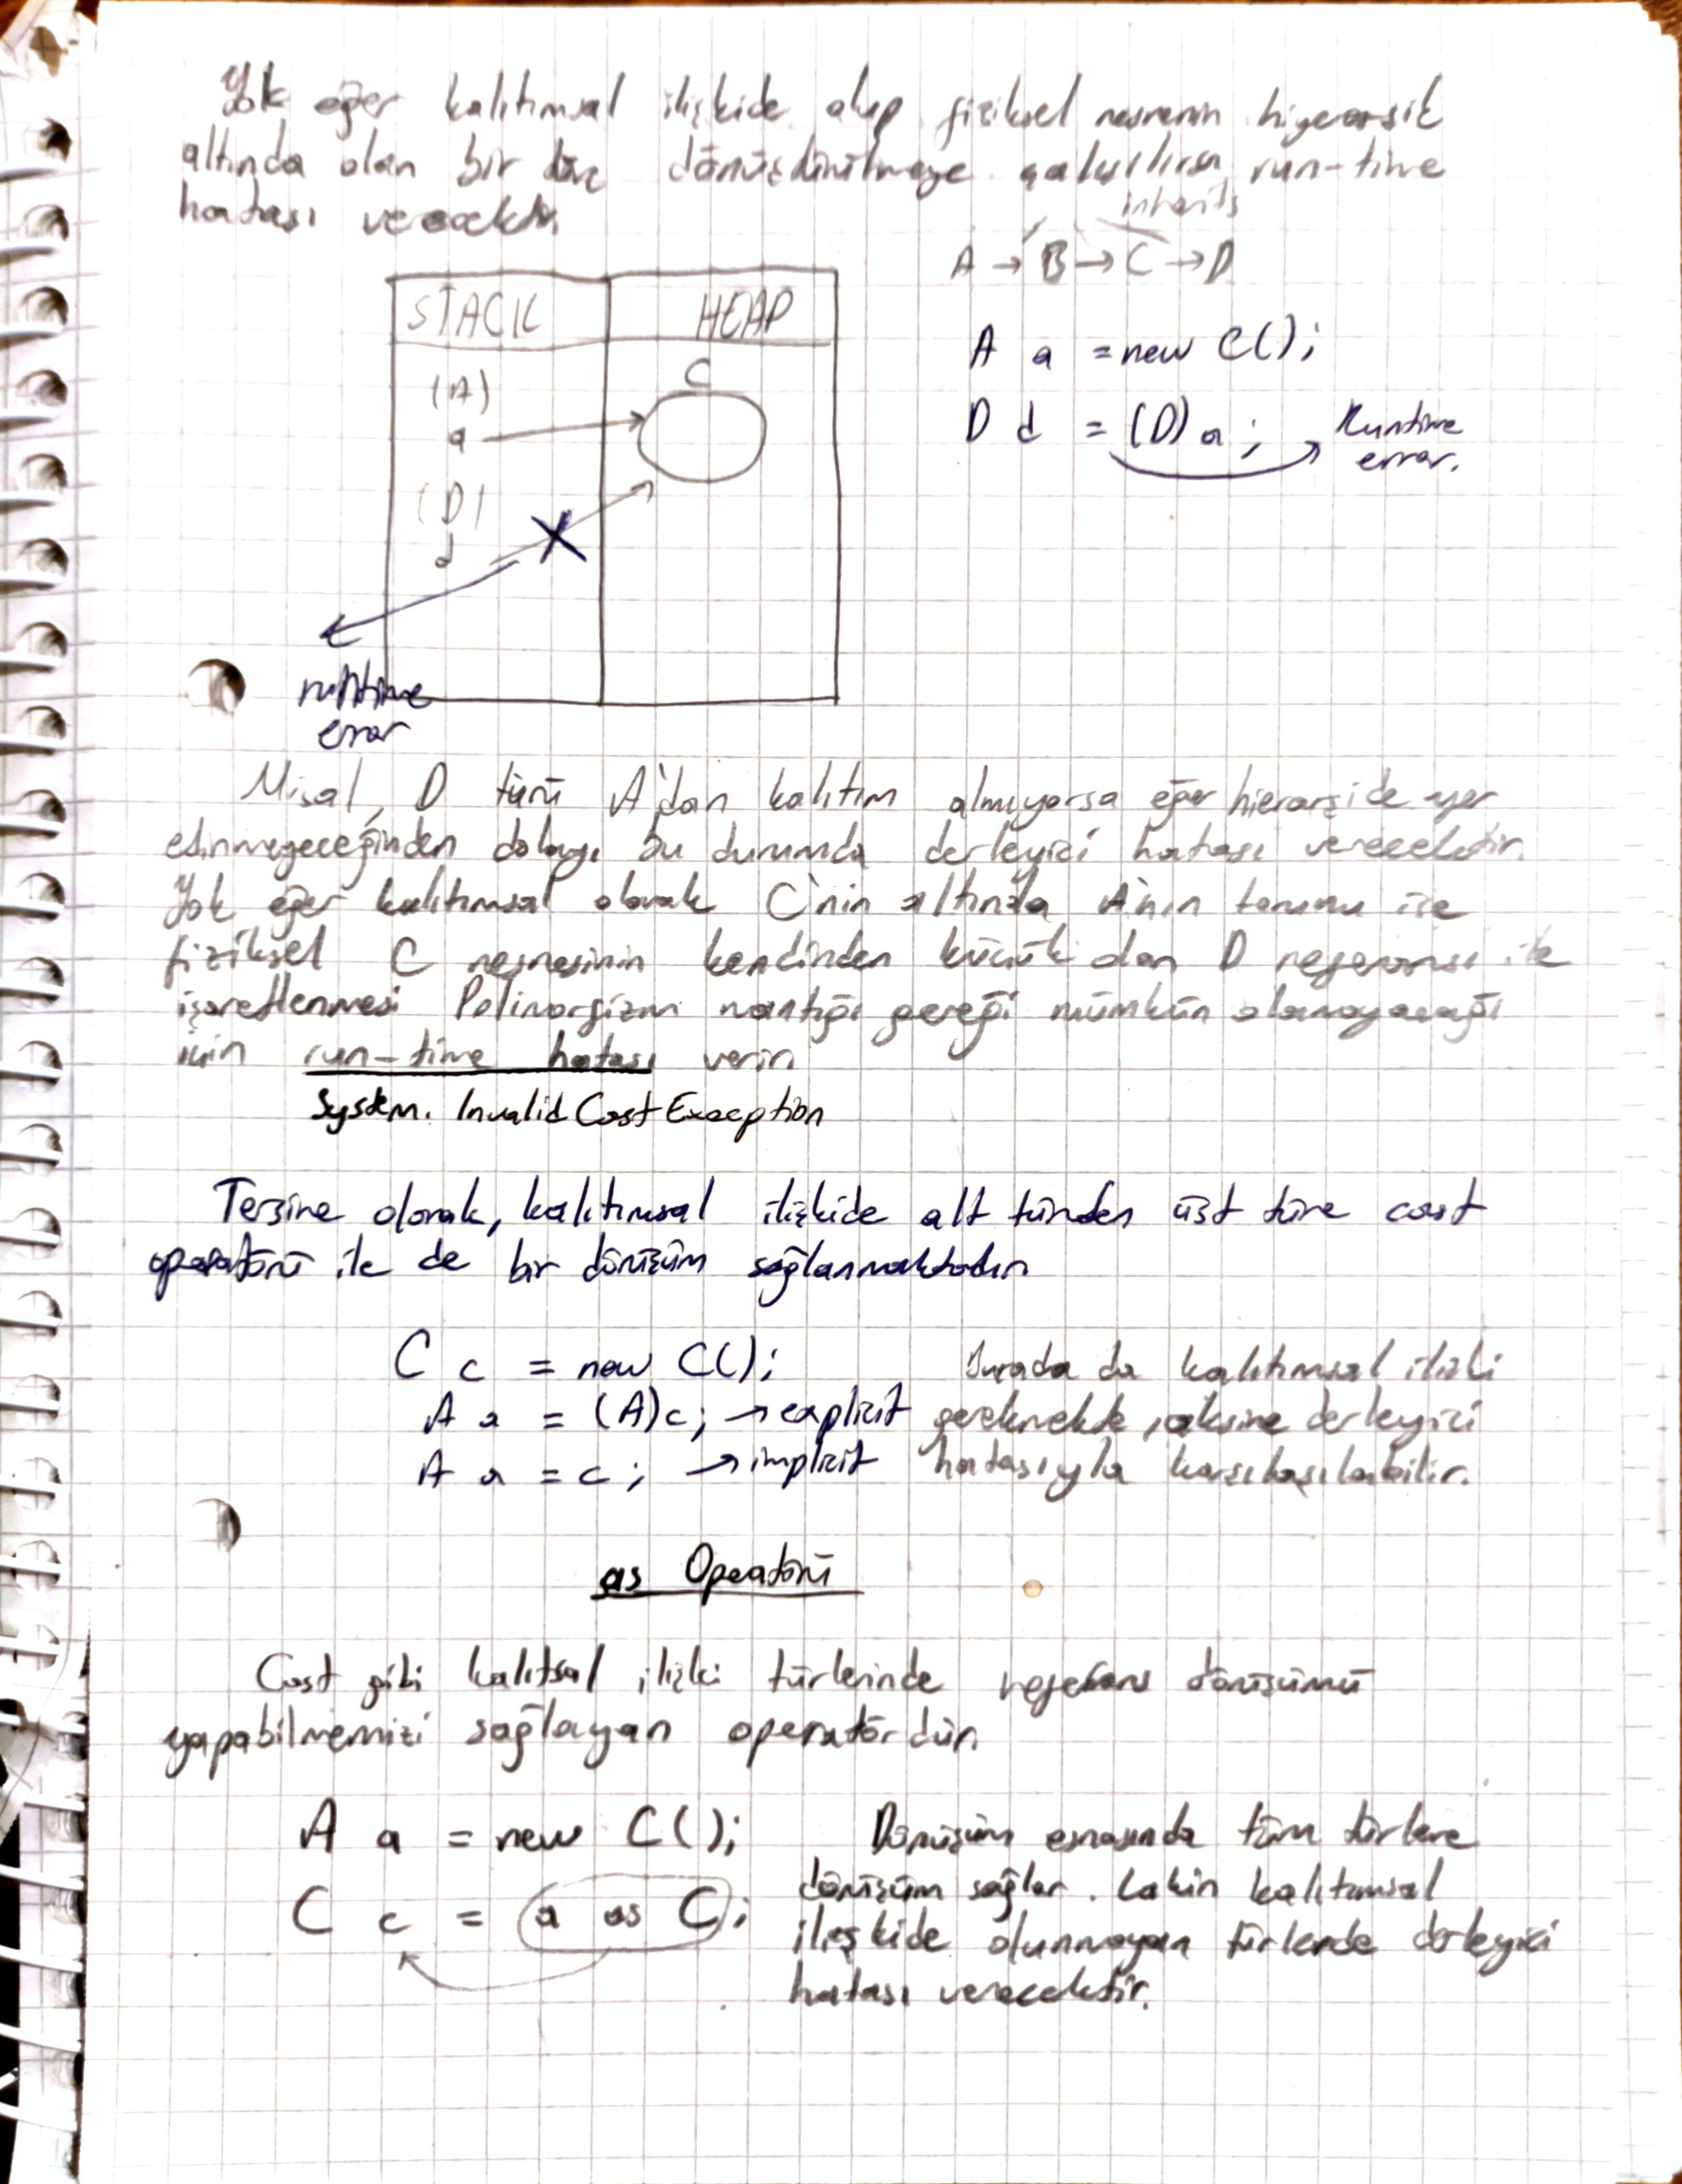 Yok eğer kalıtımsal ilişkide olup fiziksel nesnenin hiyerarşik
altında olan bir türe dönüştürülmeye çalışılırsa run-time
hatası verecektir.
inherits
A → B → C → D
STACK HEAP
A a = new C();
(A) C
a
D d = (D) a; Runtime
error.
(D)
d
runtime
error
Misal, D türü A'dan kalıtım almıyorsa eğer hierarşide yer
edinmeyeceğinden dolayı bu durumda derleyici hatası verecektir.
Yok eğer kalıtımsal olarak C'nin altında A'nın torunu ise
fiziksel C nesnesinin kendinden küçük olan D referansı ile
işaretlenmesi Polimorfizm mantığı gereği mümkün olamayacağı
için run-time hatası verir.
System. Invalid Cast Exception
Tersine olarak, kalıtımsal ilişkide alt türden üst türe cast
operatörü ile de bir dönüşüm sağlanmaktadır.
C c = new C(); Burada da kalıtımsal ilişki
A a = (A)c; → explicit gerekmekte, aksine derleyici
A a = c; → implicit hatasıyla karşılaşılabilir.
as Operatörü
Cast gibi kalıtsal ilişki türlerinde referans dönüşümü
yapabilmemizi sağlayan operatördür.
A a = new C(); Dönüşüm esnasında tüm türlere
dönüşüm sağlar. Lakin kalıtımsal
C c = a as C; ilişkide olunmayan türlerde derleyici
hatası verecektir.